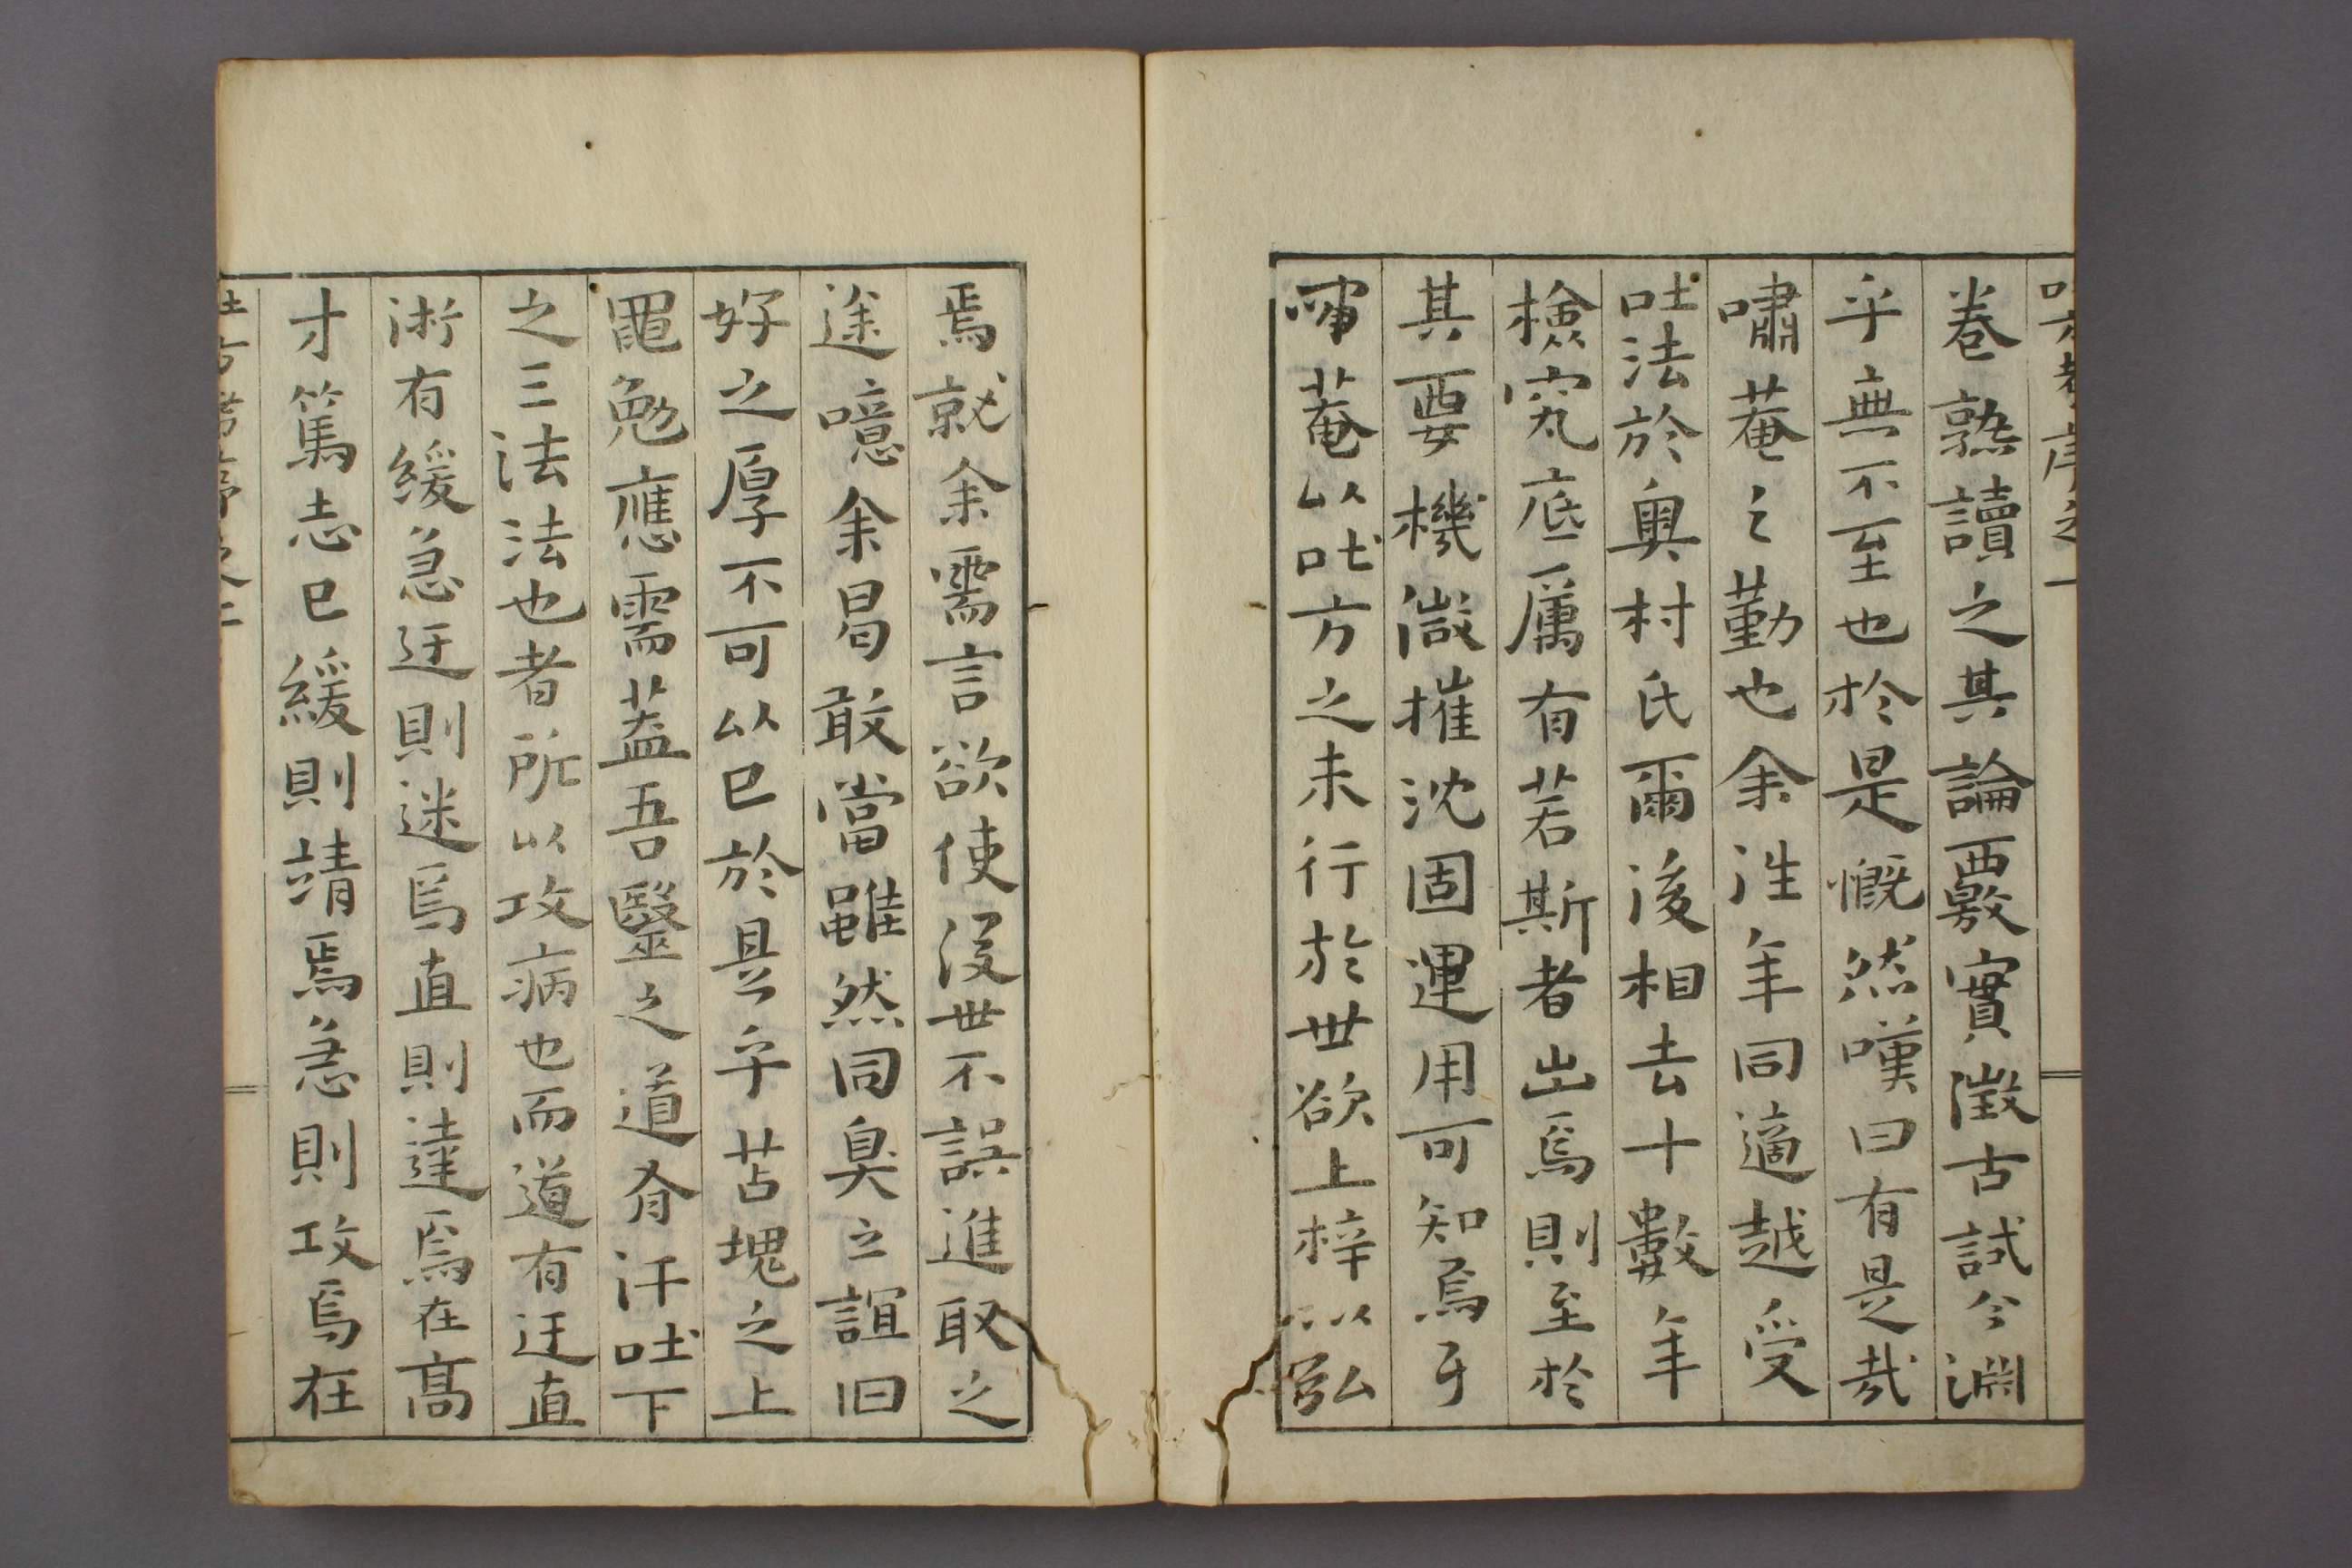 吐方考序之一
卷熟讀之其論覈實徵古試今淵
乎無不至也於是慨然嘆曰有是哉
嘯菴之勤也余往年同適越受
吐法於奧村氏爾後相去十數年
檢究底厲有若斯者出焉則至於
其要機微摧沈固運用可知焉于
嘯菴以吐方之未行於世欲上梓以弘
焉就余需言欲使沒世不誤進取之
途噫余曷敢當雖然同臭之誼旧
好之厚不可以已於是乎苫塊之上
黽勉應需蓋吾醫之道有汗吐下
之三法法也者所以攻病也而道有迂直
術有緩急迂則迷焉直則達焉在高
才篤志已緩則靖焉急則攻焉在
吐方考序之二